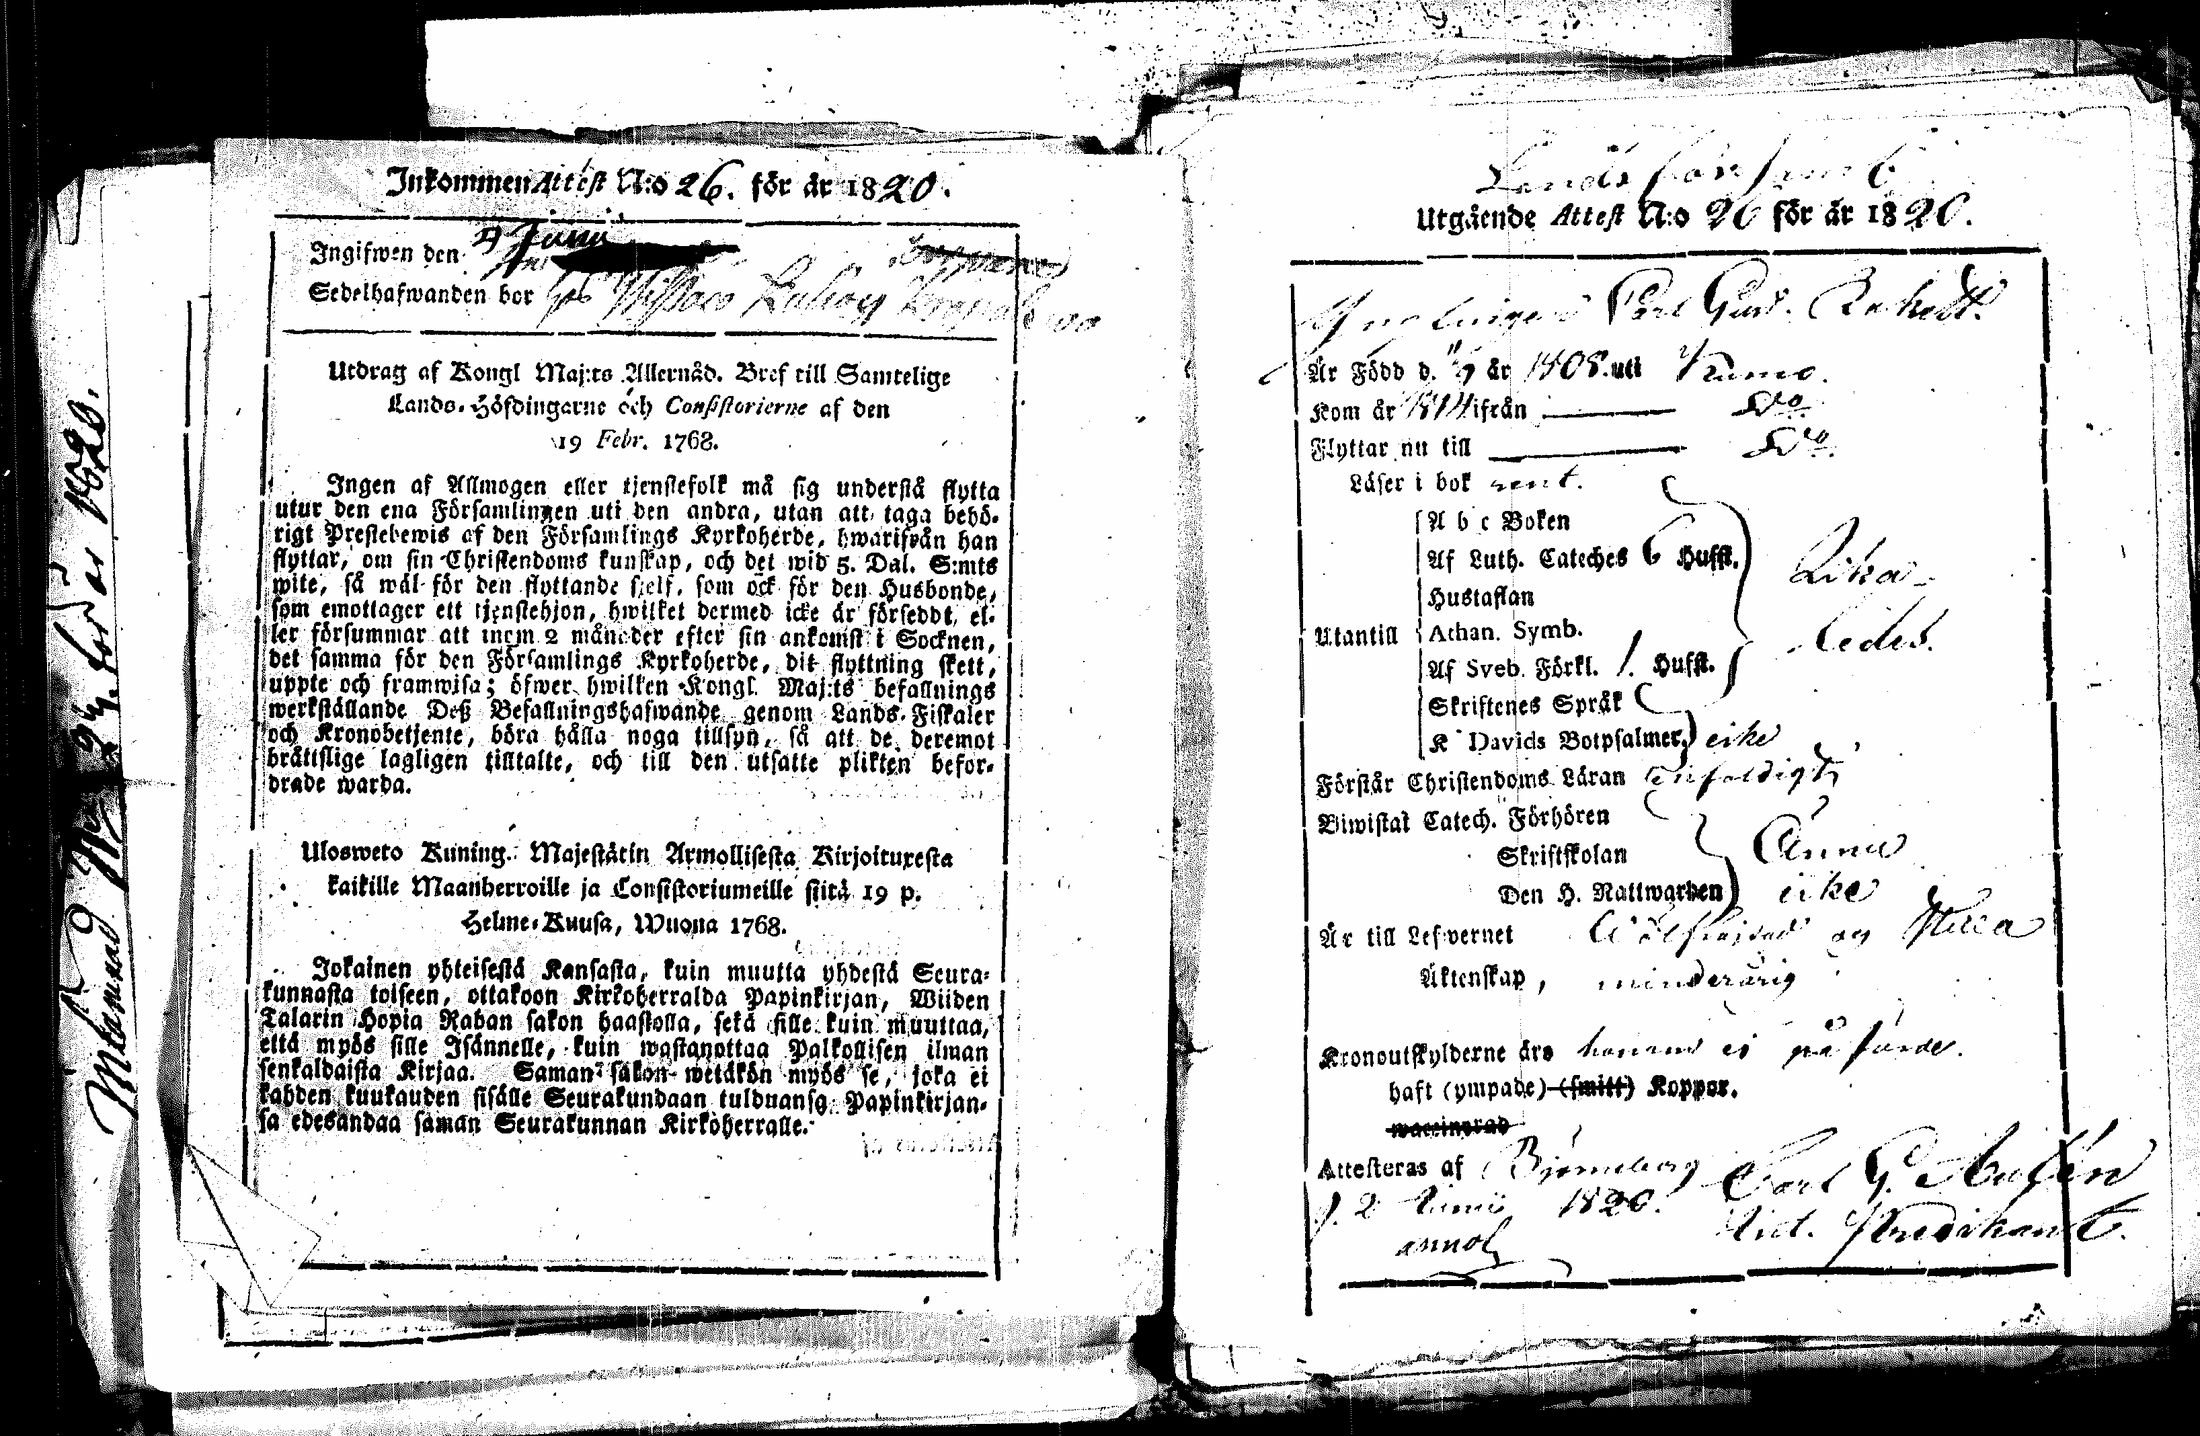 Inkommen Attest N:o 26. för år 1820.
Ingifwen den 9 Junii
Sedelhafwanden bor hos
Utdrag af Kongl Maj:ts Allernåd. Bref till Samtelige
Lands-Höfdingarne och Consistorierne af den
19 Febr. 1768.
Ingen af Allmogen eller tjenstefolk må sig understå flytta
utur den ena Församlingen uti den andra, utan att taga behö-
rigt Prestebewis af den Församlings Kyrkoherde, hwarifrån han
flyttar, om sin Christendoms kunskap, och det wid 5. Dal. S:mts
wite, så wäl för den flyttande sjelf, som ock för den Husbonde,
som emottager ett tjenstehjon, hwilket dermed icke är försedt, el-
ler försummar att inom 2 månader efter sin ankomst i Socknen,
det samma för den Församlings Kyrkoherde, dit flyttning skett,
uppte och framwisa; öfwer hwilken Kongl. Maj:ts befallnings
werkställande Deß Befallningshafwande genom Lands-Fiskaler
och Kronobetjente, böra hålla noga tillsyn, så att de deremot
bråttslige lagligen tilltalte, och till den utsatte plikten befor-
drade warda.
Ulosweto Kuning. Majestätin Armollisesta Kirjoituxesta
kaikille Maanherroille ja Consistoriumeille siitä 19 p.
Helme-Kuusa, Wuona 1768.
Jokainen yhteisestä Kansasta, kuin muutta yhdestä Seura-
kunnasta toiseen, ottakoon Kirkoherralda Papinkirjan, Wiiden
Talarin Hopia Rahan sakon haastolla, sekä sille kuin muuttaa,
että myös sille Isännelle, kuin wastanottaa Palkollisen ilman
senkaldaista Kirjaa. Saman sakon wetäkön myös se, joka ei
kahden kuukauden sisälle Seurakundaan tulduansa Papinkirjan-
sa edesandaa saman Seurakunnan Kirkoherralle.
Landsförsaml
Utgående Attest N:o 26 för år 1820.
Ynglingen Carl Gust.
Är Född d. 9 år 1808. uti
Kom år ifrån Do
Flyttar nu till Do.
Läser i bok rent.
A b c Boken
Af Luth. Cateches 6 Hufst.
Hustaflan
Utantill Athan. Symb.
Af Sveb. Förkl. 1. Hufst.
Lika-
ledes.
Skriftenes Språk
K Davids Botpsalmer. icke
Förstår Christendoms Läran enfaldigt
Biwistat Catech. Förhören
Skriftskolan
Den H. Nattwarden
Ännu
icke
Är till Lefwernet och stilla
Äktenskap, minderårig
Kronoutskylderne äro honom ej påförde.
haft (ympade) (smitt) Koppor.
waccinerad
Attesteras af Björneborg Carl G.
d. 2 Junii 1820. Vict. Predikant.